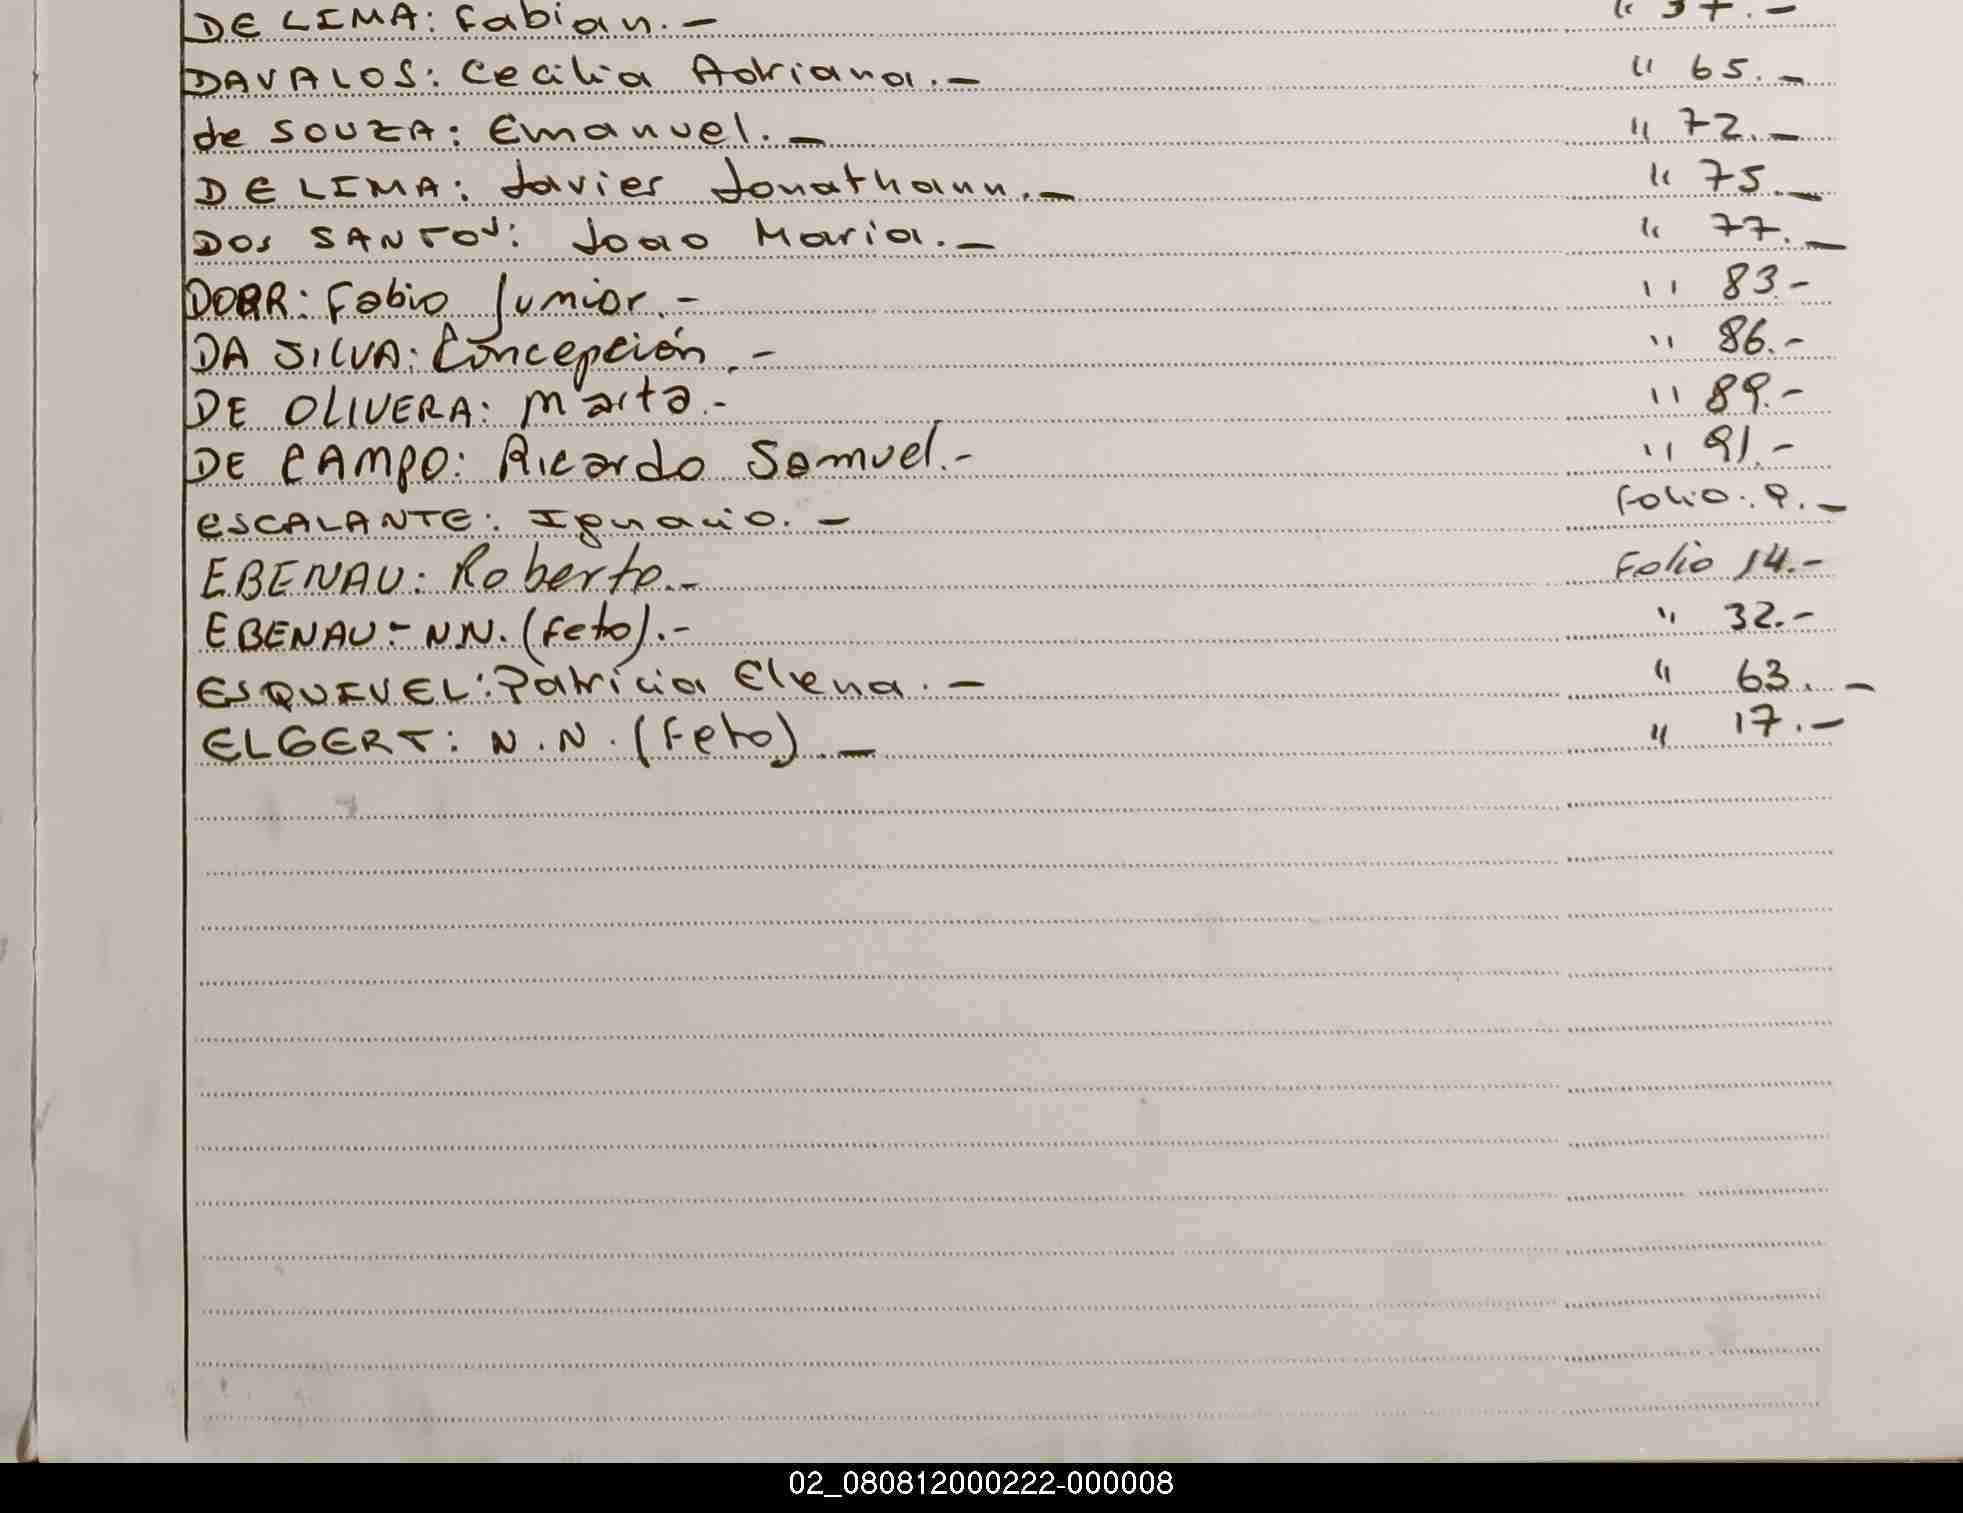 DE LIMA: Fabian.- " 37.-
DAVALOS: Cecilia Adriana.- " 65.-
de SOUZA: Emanuel.- " 72.-
DE LIMA: Javier Jonathann.- " 75.-
DOS SANTOS: Joao Maria.- " 77.-
DORR: Fabio Junior.- " 83.-
DA SILVA: Concepción.- " 86.-
DE OLIVERA: Marta.- " 89.-
DE CAMPO: Ricardo Samuel.- " 91.-
ESCALANTE: Ignacio.- Folio: 9.-
EBENAU: Roberto.- Folio 14.-
EBENAU:- N.N. (Feto).- " 32.-
ESQUIVEL: Patricia Elena.- " 63.-
ELGERT: N.N. (Feto).- " 17.-
02_080812000222-000008